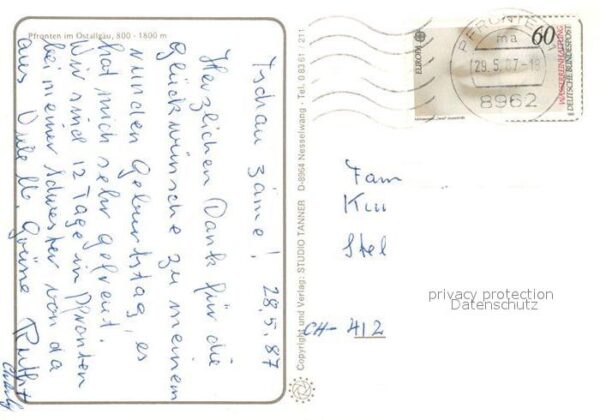 Pfronten im Ostallgäu, 800 - 1800 m
Tschau zäme! 28.5.87
Herzlichen Dank für die
glückwünsche zu meinem
runden Geburtstag, es
hat mich sehr gefreut.
Wir sind 12 Tage in Pfronten
bei meiner Schwester von da
aus viele lb. Grüsse Ruth +
Charly
Copyright und Verlag: STUDIO TANNER D-8964 Nesselwang · Tel. 0 83 61 / 211
EUROPA
60
WASSERREINHALTUNG
DEUTSCHE BUNDESPOST
ma
29.5.87-18
8962
Fam
Stel
CH-412
privacy protection
Datenschutz